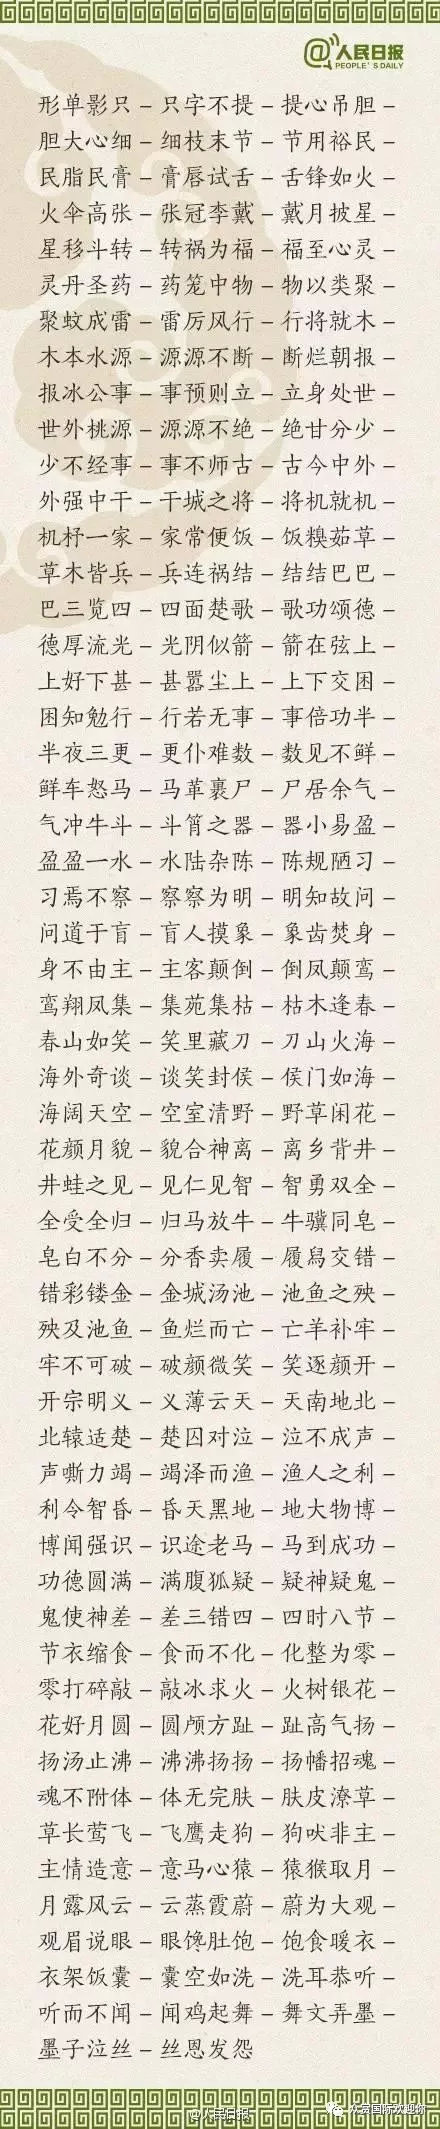 @人民日报
PEOPLE'S DAILY
形单影只–只字不提–提心吊胆–
胆大心细–细枝末节–节用裕民–
民脂民膏–膏唇试舌–舌锋如火–
火伞高张–张冠李戴–戴月披星–
星移斗转–转祸为福–福至心灵–
灵丹圣药–药笼中物–物以类聚–
聚蚊成雷–雷厉风行–行将就木–
木本水源–源源不断–断烂朝报–
报冰公事–事预则立–立身处世–
世外桃源–源源不绝–绝甘分少–
少不经事–事不师古–古今中外–
外强中干–干城之将–将机就机–
机杼一家–家常便饭–饭糗茹草–
草木皆兵–兵连祸结–结结巴巴–
巴三览四–四面楚歌–歌功颂德–
德厚流光–光阴似箭–箭在弦上–
上好下甚–甚嚣尘上–上下交困–
困知勉行–行若无事–事倍功半–
半夜三更–更仆难数–数见不鲜–
鲜车怒马–马革裹尸–尸居余气–
气冲牛斗–斗筲之器–器小易盈–
盈盈一水–水陆杂陈–陈规陋习–
习焉不察–察察为明–明知故问–
问道于盲–盲人摸象–象齿焚身–
身不由主–主客颠倒–倒凤颠鸾–
鸾翔凤集–集苑集枯–枯木逢春–
春山如笑–笑里藏刀–刀山火海–
海外奇谈–谈笑封侯–侯门如海–
海阔天空–空室清野–野草闲花–
花颜月貌–貌合神离–离乡背井–
井蛙之见–见仁见智–智勇双全–
全受全归–归马放牛–牛骥同皂–
皂白不分–分香卖履–履舄交错–
错彩镂金–金城汤池–池鱼之殃–
殃及池鱼–鱼烂而亡–亡羊补牢–
牢不可破–破颜微笑–笑逐颜开–
开宗明义–义薄云天–天南地北–
北辕适楚–楚囚对泣–泣不成声–
声嘶力竭–竭泽而渔–渔人之利–
利令智昏–昏天黑地–地大物博–
博闻强识–识途老马–马到成功–
功德圆满–满腹狐疑–疑神疑鬼–
鬼使神差–差三错四–四时八节–
节衣缩食–食而不化–化整为零–
零打碎敲–敲冰求火–火树银花–
花好月圆–圆颅方趾–趾高气扬–
扬汤止沸–沸沸扬扬–扬幡招魂–
魂不附体–体无完肤–肤皮潦草–
草长莺飞–飞鹰走狗–狗吠非主–
主情造意–意马心猿–猿猴取月–
月露风云–云蒸霞蔚–蔚为大观–
观眉说眼–眼馋肚饱–饱食暖衣–
衣架饭囊–囊空如洗–洗耳恭听–
听而不闻–闻鸡起舞–舞文弄墨–
墨子泣丝–丝恩发怨
@人民日报
众赏国际欢迎你